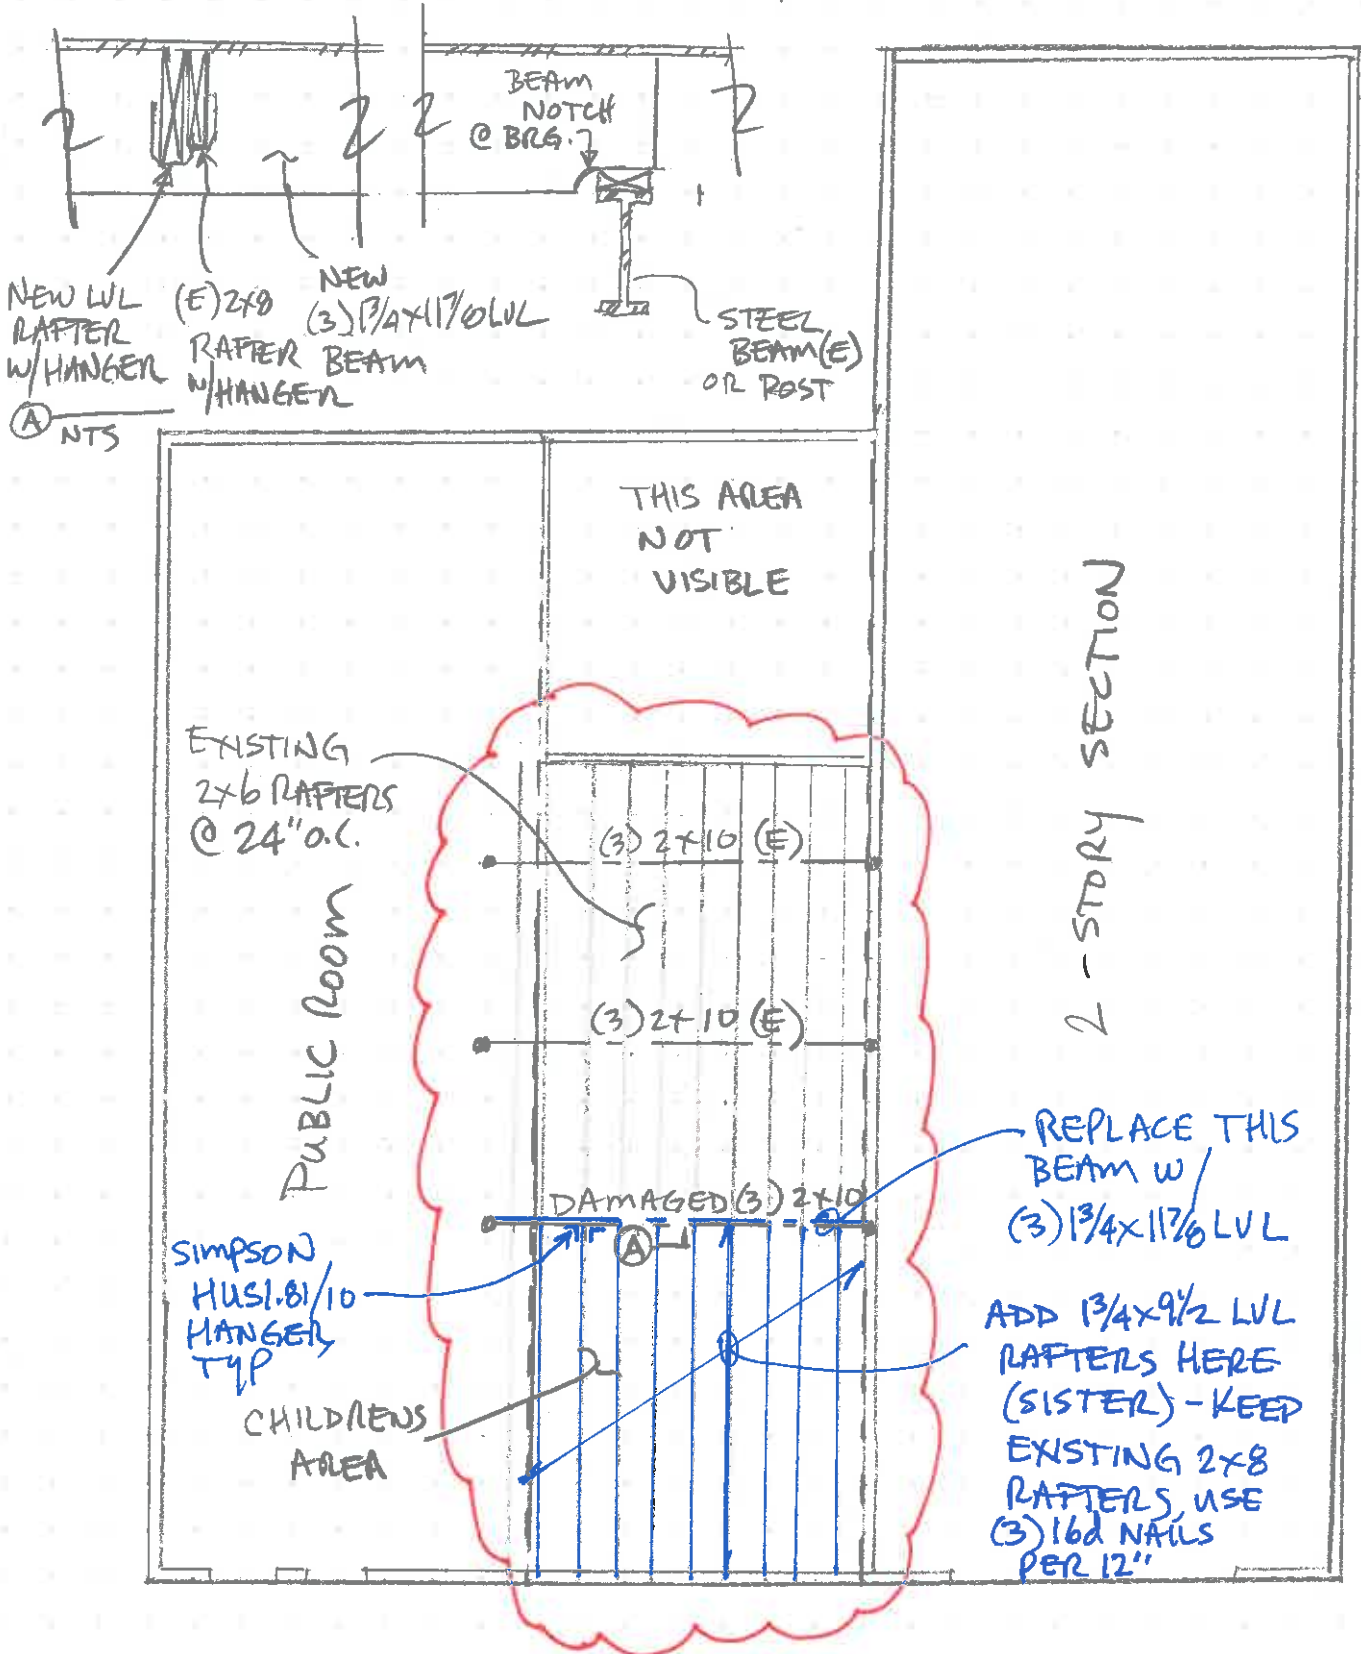 BEAM
NOTCH
@ BRG.
NEW LVL
RAFTER
W/HANGER
(E) 2x8
RAFTER
W/HANGER
NEW
(3) 1 3/4 x 11 7/8 LVL
BEAM
STEEL
BEAM (E)
OR POST
A
NTS
THIS AREA
NOT
VISIBLE
2-STORY SECTION
EXISTING
2x6 RAFTERS
@ 24" O.C.
(3) 2x10 (E)
PUBLIC ROOM
(3) 2x10 (E)
DAMAGED (3) 2x10
A
REPLACE THIS
BEAM W/
(3) 1 3/4 x 11 7/8 LVL
SIMPSON
HUS1.81/10
HANGER,
TYP
ADD 1 3/4 x 9 1/2 LVL
RAFTERS HERE
(SISTER) - KEEP
EXISTING 2x8
RAFTERS, USE
(3) 16d NAILS
PER 12"
CHILDRENS
AREA